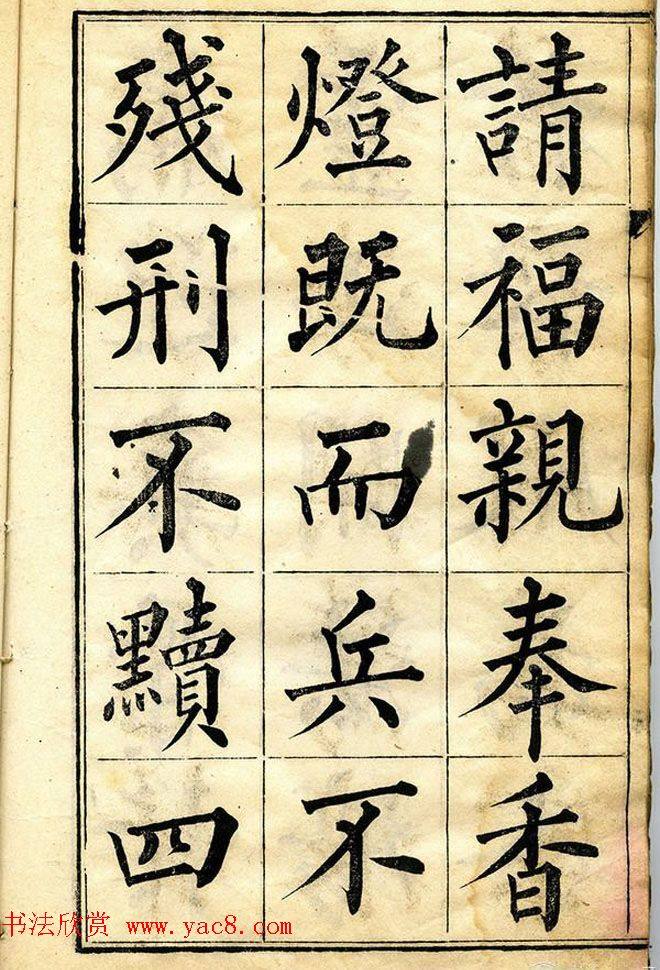 請福親奉香
燈既而兵不
殘刑不黷四
书法欣赏 www.yac8.com